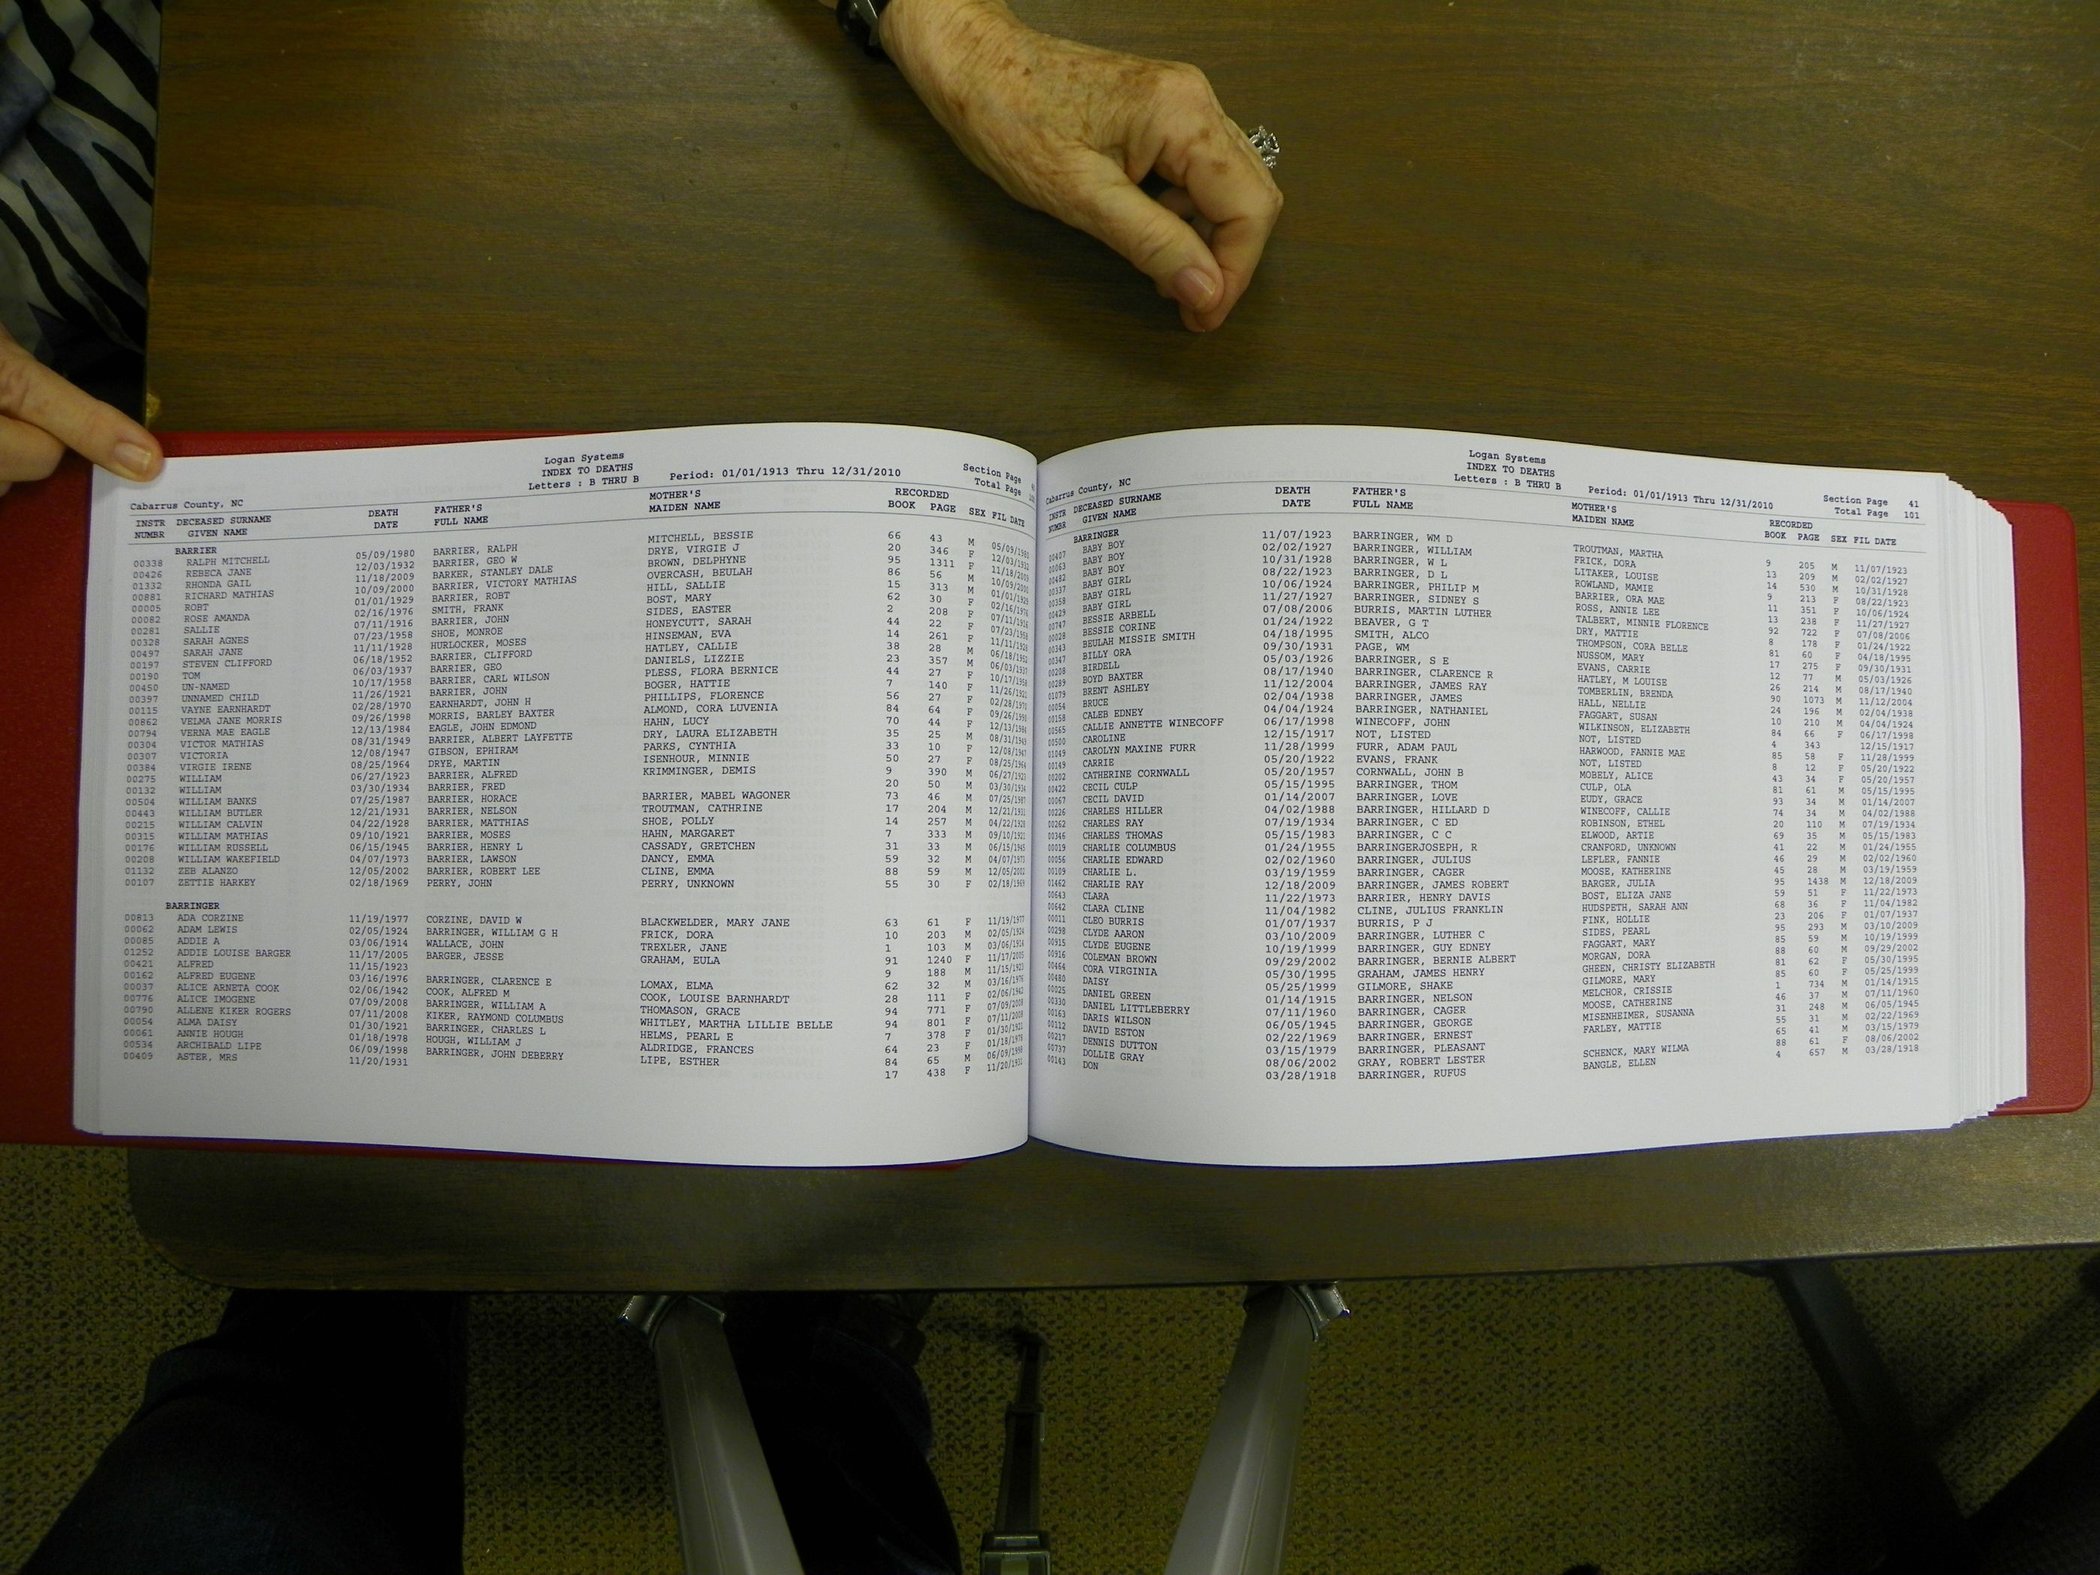 Logan Systems
INDEX TO DEATHS
Letters : B THRU B Period: 01/01/1913 Thru 12/31/2010 Section Page
Total Page
Cabarrus County, NC
INSTR DECEASED SURNAME DEATH FATHER'S MOTHER'S RECORDED
NUMBR GIVEN NAME DATE FULL NAME MAIDEN NAME BOOK PAGE SEX FIL DATE
BARRIER
00338 RALPH MITCHELL 05/09/1980 BARRIER, RALPH MITCHELL, BESSIE 66 43 M 05/09/1980
00426 REBECA JANE 12/03/1932 BARRIER, GEO W DRYE, VIRGIE J 20 346 F 12/03/1932
01332 RHONDA GAIL 11/18/2009 BARKER, STANLEY DALE BROWN, DELPHYNE 95 1311 F 11/18/2009
00881 RICHARD MATHIAS 10/09/2000 BARRIER, VICTORY MATHIAS OVERCASH, BEULAH 86 56 M 10/09/2000
00005 ROBT 01/01/1929 BARRIER, ROBT HILL, SALLIE 15 313 M 01/01/1929
00082 ROSE AMANDA 02/16/1976 SMITH, FRANK BOST, MARY 62 30 F 02/16/1976
00281 SALLIE 07/11/1916 BARRIER, JOHN SIDES, EASTER 2 208 F 07/11/1916
00328 SARAH AGNES 07/23/1958 SHOE, MONROE HONEYCUTT, SARAH 44 22 F 07/23/1958
00497 SARAH JANE 11/11/1928 HURLOCKER, MOSES HINSEMAN, EVA 14 261 F 11/11/1928
00197 STEVEN CLIFFORD 06/18/1952 BARRIER, CLIFFORD HATLEY, CALLIE 38 28 M 06/18/1952
00190 TOM 06/03/1937 BARRIER, GEO DANIELS, LIZZIE 23 357 M 06/03/1937
00450 UN-NAMED 10/17/1958 BARRIER, CARL WILSON PLESS, FLORA BERNICE 44 27 F 10/17/1958
00397 UNNAMED CHILD 11/26/1921 BARRIER, JOHN BOGER, HATTIE 7 140 F 11/26/1921
00115 VAYNE EARNHARDT 02/28/1970 EARNHARDT, JOHN H PHILLIPS, FLORENCE 56 27 F 02/28/1970
00862 VELMA JANE MORRIS 09/26/1998 MORRIS, BARLEY BAXTER ALMOND, CORA LUVENIA 84 64 F 09/26/1998
00794 VERNA MAE EAGLE 12/13/1984 EAGLE, JOHN EDMOND HAHN, LUCY 70 44 F 12/13/1984
00304 VICTOR MATHIAS 08/31/1949 BARRIER, ALBERT LAYFETTE DRY, LAURA ELIZABETH 35 25 M 08/31/1949
00307 VICTORIA 12/08/1947 GIBSON, EPHIRAM PARKS, CYNTHIA 33 10 F 12/08/1947
00384 VIRGIE IRENE 08/25/1964 DRYE, MARTIN ISENHOUR, MINNIE 50 27 F 08/25/1964
00275 WILLIAM 06/27/1923 BARRIER, ALFRED KRIMMINGER, DEMIS 9 390 M 06/27/1923
00132 WILLIAM 03/30/1934 BARRIER, FRED 20 50 M 03/30/1934
00504 WILLIAM BANKS 07/25/1987 BARRIER, HORACE BARRIER, MABEL WAGONER 73 46 M 07/25/1987
00443 WILLIAM BUTLER 12/21/1931 BARRIER, NELSON TROUTMAN, CATHRINE 17 204 M 12/21/1931
00215 WILLIAM CALVIN 04/22/1928 BARRIER, MATTHIAS SHOE, POLLY 14 257 M 04/22/1928
00315 WILLIAM MATHIAS 09/10/1921 BARRIER, MOSES HAHN, MARGARET 7 333 M 09/10/1921
00176 WILLIAM RUSSELL 06/15/1945 BARRIER, HENRY L CASSADY, GRETCHEN 31 33 M 06/15/1945
00208 WILLIAM WAKEFIELD 04/07/1973 BARRIER, LAWSON DANCY, EMMA 59 32 M 04/07/1973
01132 ZEB ALANZO 12/05/2002 BARRIER, ROBERT LEE CLINE, EMMA 88 59 M 12/05/2002
00107 ZETTIE HARKEY 02/18/1969 PERRY, JOHN PERRY, UNKNOWN 55 30 F 02/18/1969
BARRINGER
00813 ADA CORZINE 11/19/1977 CORZINE, DAVID W BLACKWELDER, MARY JANE 63 61 F 11/19/1977
00062 ADAM LEWIS 02/05/1924 BARRINGER, WILLIAM G H FRICK, DORA 10 203 M 02/05/1924
00085 ADDIE A 03/06/1914 WALLACE, JOHN TREXLER, JANE 1 103 M 03/06/1914
01252 ADDIE LOUISE BARGER 11/17/2005 BARGER, JESSE GRAHAM, EULA 91 1240 F 11/17/2005
00421 ALFRED 11/15/1923 9 188 M 11/15/1923
00162 ALFRED EUGENE 03/16/1976 BARRINGER, CLARENCE E LOMAX, ELMA 62 32 M 03/16/1976
00037 ALICE ARNETA COOK 02/06/1942 COOK, ALFRED M COOK, LOUISE BARNHARDT 28 111 F 02/06/1942
00776 ALICE IMOGENE 07/09/2008 BARRINGER, WILLIAM A THOMASON, GRACE 94 771 F 07/09/2008
00790 ALLENE KIKER ROGERS 07/11/2008 KIKER, RAYMOND COLUMBUS WHITLEY, MARTHA LILLIE BELLE 94 801 F 07/11/2008
00054 ALMA DAISY 01/30/1921 BARRINGER, CHARLES L HELMS, PEARL E 7 378 F 01/30/1921
00061 ANNIE HOUGH 01/18/1978 HOUGH, WILLIAM J ALDRIDGE, FRANCES 64 23 F 01/18/1978
00534 ARCHIBALD LIPE 06/09/1998 BARRINGER, JOHN DEBERRY LIPE, ESTHER 84 65 M 06/09/1998
00409 ASTER, MRS 11/20/1931 17 438 F 11/20/1931
Logan Systems
INDEX TO DEATHS
Letters : B THRU B Period: 01/01/1913 Thru 12/31/2010 Section Page 41
Total Page 101
Cabarrus County, NC
INSTR DECEASED SURNAME DEATH FATHER'S MOTHER'S RECORDED
NUMBR GIVEN NAME DATE FULL NAME MAIDEN NAME BOOK PAGE SEX FIL DATE
BARRINGER
00407 BABY BOY 11/07/1923 BARRINGER, WM D TROUTMAN, MARTHA 9 205 M 11/07/1923
00063 BABY BOY 02/02/1927 BARRINGER, WILLIAM FRICK, DORA 13 209 M 02/02/1927
00482 BABY BOY 10/31/1928 BARRINGER, W L LITAKER, LOUISE 14 530 M 10/31/1928
00337 BABY GIRL 08/22/1923 BARRINGER, D L ROWLAND, MAMIE 9 213 F 08/22/1923
00358 BABY GIRL 10/06/1924 BARRINGER, PHILIP M BARRIER, ORA MAE 11 351 F 10/06/1924
00429 BABY GIRL 11/27/1927 BARRINGER, SIDNEY S ROSS, ANNIE LEE 13 238 F 11/27/1927
00747 BESSIE ARBELL 07/08/2006 BURRIS, MARTIN LUTHER TALBERT, MINNIE FLORENCE 92 722 F 07/08/2006
00028 BESSIE CORINE 01/24/1922 BEAVER, G T DRY, MATTIE 8 178 F 01/24/1922
00343 BEULAH MISSIE SMITH 04/18/1995 SMITH, ALCO THOMPSON, CORA BELLE 81 60 F 04/18/1995
00347 BILLY ORA 09/30/1931 PAGE, WM NUSSOM, MARY 17 275 F 09/30/1931
00208 BIRDELL 05/03/1926 BARRINGER, S E EVANS, CARRIE 12 77 M 05/03/1926
00289 BOYD BAXTER 08/17/1940 BARRINGER, CLARENCE R HATLEY, M LOUISE 26 214 M 08/17/1940
01079 BRENT ASHLEY 11/12/2004 BARRINGER, JAMES RAY TOMBERLIN, BRENDA 90 1073 M 11/12/2004
00054 BRUCE 02/04/1938 BARRINGER, JAMES HALL, NELLIE 24 196 M 02/04/1938
00158 CALEB EDNEY 04/04/1924 BARRINGER, NATHANIEL FAGGART, SUSAN 10 210 M 04/04/1924
00565 CALLIE ANNETTE WINECOFF 06/17/1998 WINECOFF, JOHN WILKINSON, ELIZABETH 84 66 F 06/17/1998
00500 CAROLINE 12/15/1917 NOT, LISTED NOT, LISTED 4 343 12/15/1917
01049 CAROLYN MAXINE FURR 11/28/1999 FURR, ADAM PAUL HARWOOD, FANNIE MAE 85 58 F 11/28/1999
00149 CARRIE 05/20/1922 EVANS, FRANK NOT, LISTED 8 12 F 05/20/1922
00202 CATHERINE CORNWALL 05/20/1957 CORNWALL, JOHN B MOBELY, ALICE 43 34 F 05/20/1957
00422 CECIL CULP 05/15/1995 BARRINGER, THOM CULP, OLA 81 61 M 05/15/1995
00067 CECIL DAVID 01/14/2007 BARRINGER, LOVE EUDY, GRACE 93 34 M 01/14/2007
00226 CHARLES HILLER 04/02/1988 BARRINGER, HILLARD D WINECOFF, CALLIE 74 34 M 04/02/1988
00262 CHARLES RAY 07/19/1934 BARRINGER, C ED ROBINSON, ETHEL 20 110 M 07/19/1934
00346 CHARLES THOMAS 05/15/1983 BARRINGER, C C ELWOOD, ARTIE 69 35 M 05/15/1983
00019 CHARLIE COLUMBUS 01/24/1955 BARRINGERJOSEPH, R CRANFORD, UNKNOWN 41 22 M 01/24/1955
00056 CHARLIE EDWARD 02/02/1960 BARRINGER, JULIUS LEFLER, FANNIE 46 29 M 02/02/1960
00109 CHARLIE L. 03/19/1959 BARRINGER, CAGER MOOSE, KATHERINE 45 28 M 03/19/1959
01462 CHARLIE RAY 12/18/2009 BARRINGER, JAMES ROBERT BARGER, JULIA 95 1438 M 12/18/2009
00643 CLARA 11/22/1973 BARRIER, HENRY DAVIS BOST, ELIZA JANE 59 51 F 11/22/1973
00642 CLARA CLINE 11/04/1982 CLINE, JULIUS FRANKLIN HUDSPETH, SARAH ANN 68 36 F 11/04/1982
00011 CLEO BURRIS 01/07/1937 BURRIS, P J FINK, HOLLIE 23 206 F 01/07/1937
00298 CLYDE AARON 03/10/2009 BARRINGER, LUTHER C SIDES, PEARL 95 293 M 03/10/2009
00915 CLYDE EUGENE 10/19/1999 BARRINGER, GUY EDNEY FAGGART, MARY 85 59 M 10/19/1999
00916 COLEMAN BROWN 09/29/2002 BARRINGER, BERNIE ALBERT MORGAN, DORA 88 60 M 09/29/2002
00464 CORA VIRGINIA 05/30/1995 GRAHAM, JAMES HENRY GHEEN, CHRISTY ELIZABETH 81 62 F 05/30/1995
00480 DAISY 05/25/1999 GILMORE, SHAKE GILMORE, MARY 85 60 F 05/25/1999
00025 DANIEL GREEN 01/14/1915 BARRINGER, NELSON MELCHOR, CRISSIE 1 734 M 01/14/1915
00330 DANIEL LITTLEBERRY 07/11/1960 BARRINGER, CAGER MOOSE, CATHERINE 46 37 M 07/11/1960
00163 DARIS WILSON 06/05/1945 BARRINGER, GEORGE MISENHEIMER, SUSANNA 31 248 M 06/05/1945
00112 DAVID ESTON 02/22/1969 BARRINGER, ERNEST FARLEY, MATTIE 55 31 M 02/22/1969
00217 DENNIS DUTTON 03/15/1979 BARRINGER, PLEASANT 65 41 M 03/15/1979
00737 DOLLIE GRAY 08/06/2002 GRAY, ROBERT LESTER SCHENCK, MARY WILMA 88 61 F 08/06/2002
00143 DON 03/28/1918 BARRINGER, RUFUS BANGLE, ELLEN 4 657 M 03/28/1918